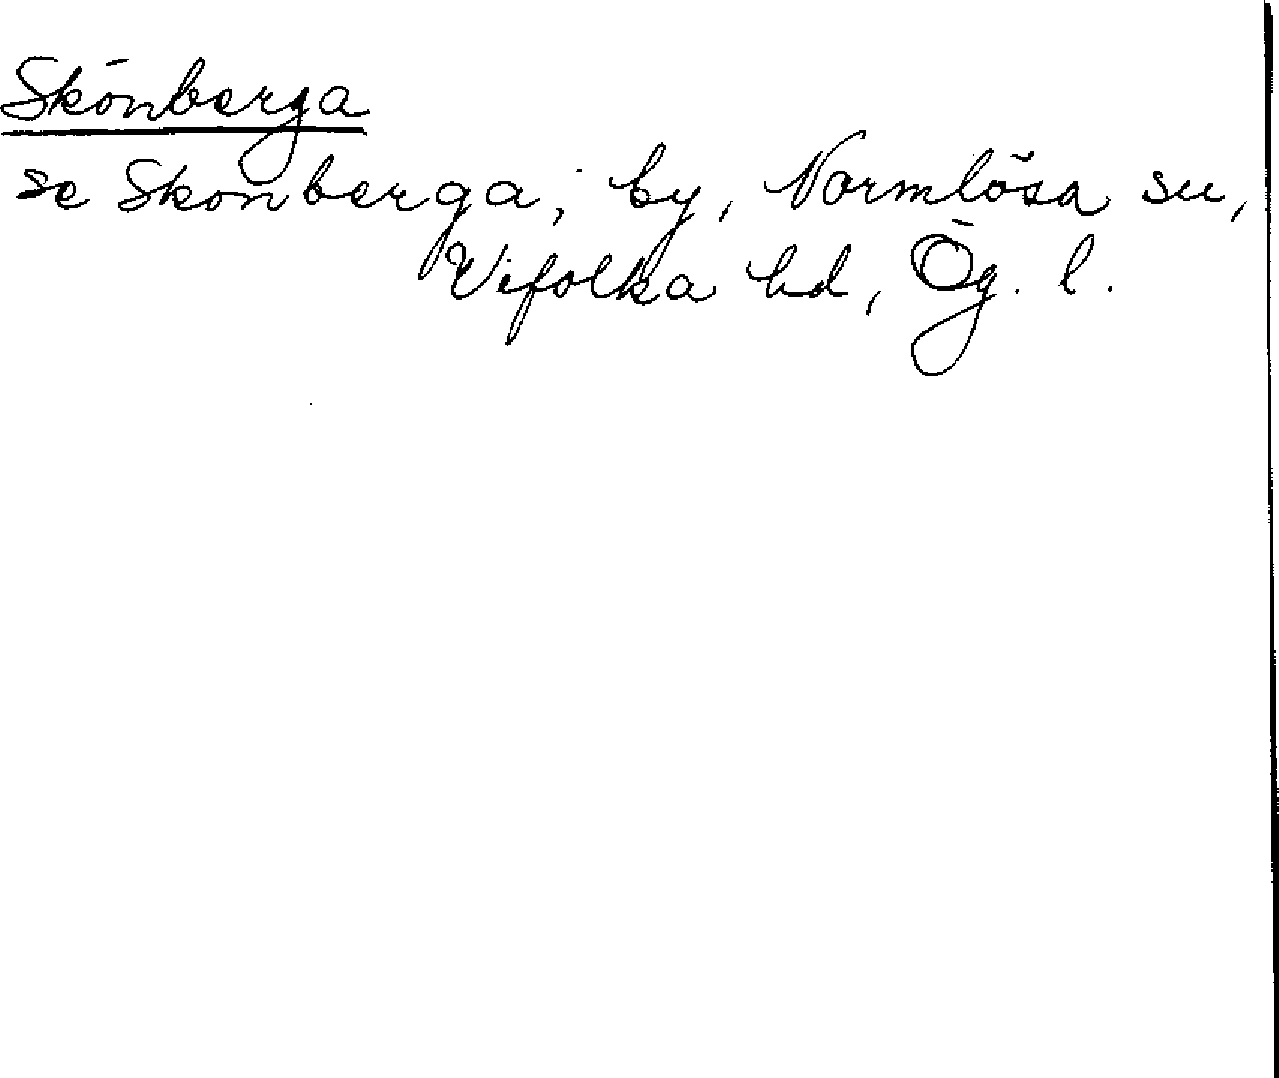 Skönberga
se Skonberga, by, Normlösa su,
Vifolka hd, Ög. l.